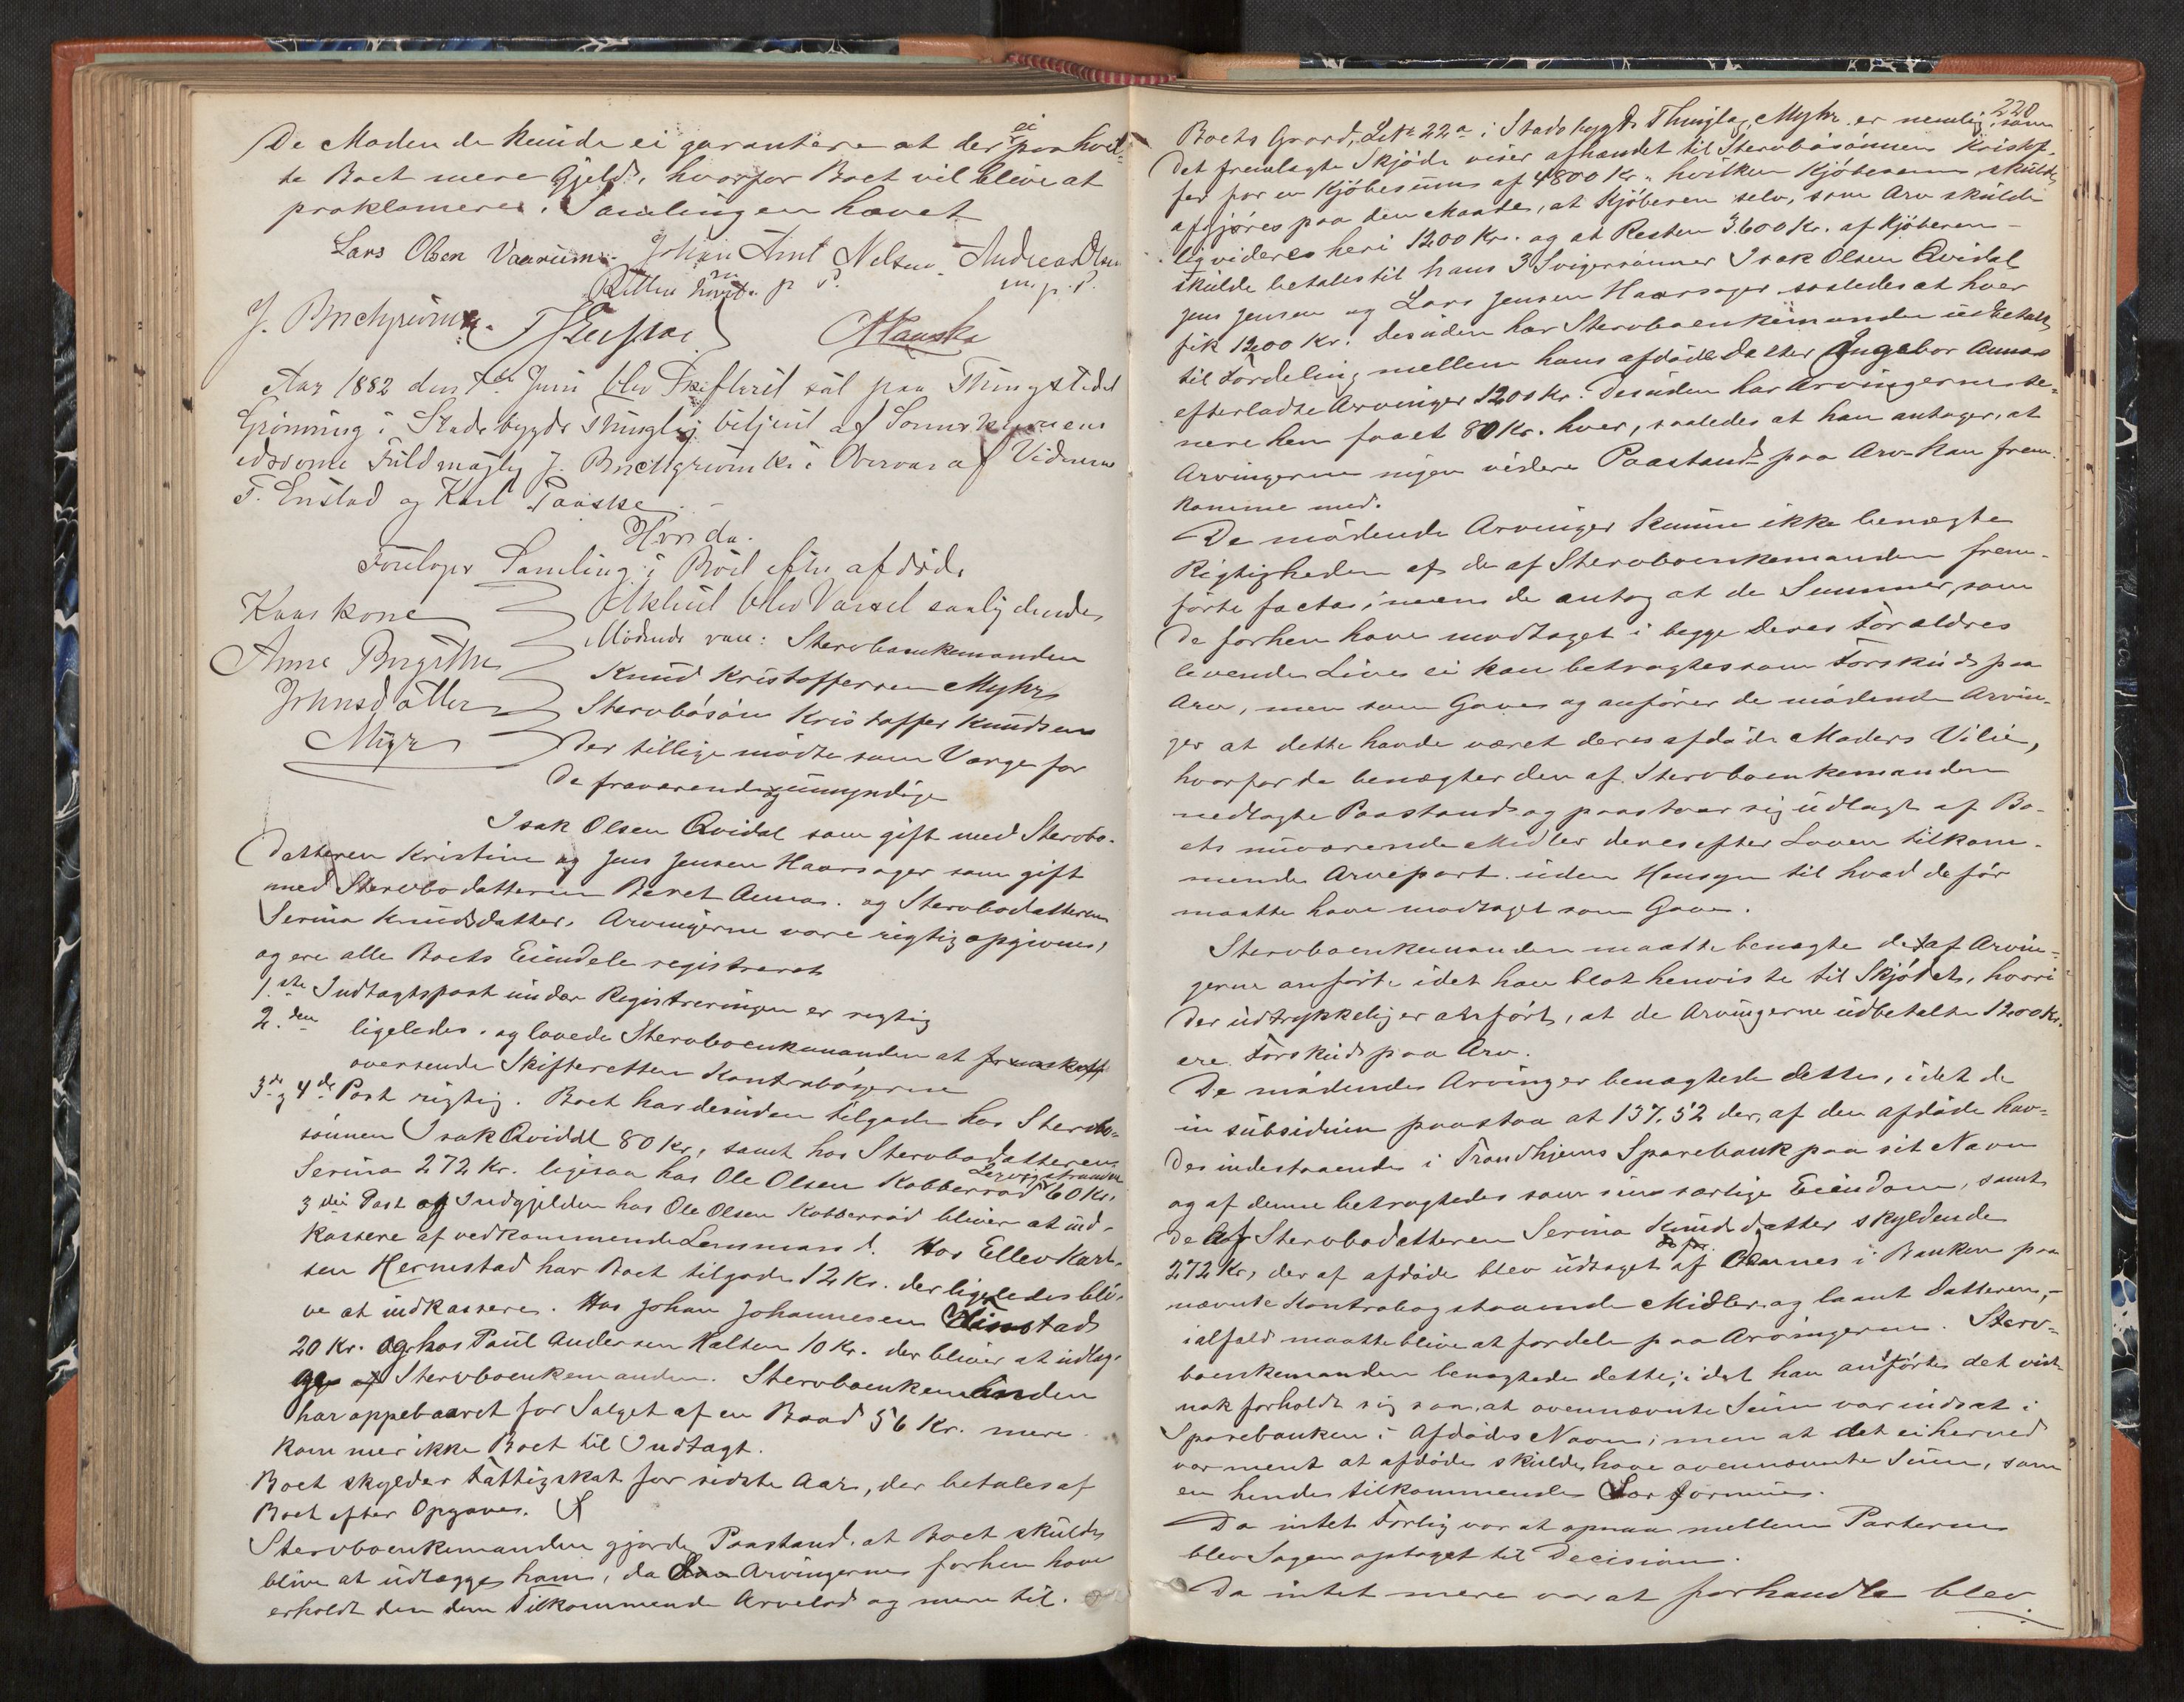 De Mødende kunde ei garantere at der ei paahvil-
te Boet mere Gjeld, hvorfor Boet vil blive at
proklamere. Samlingen hævet
Lars Olsen Vaarum. Johan Arnt Nelsen. Andreas Olsen
m. p. P. m. p. P.
J. Buchgrevink.
Aar 1882 den 7de Juni blev Skifteret sat paa Thingstedet
Grønning i Stadsbygds Thinglag betjent af Sorenskriverens
edsvorne Fuldmægtig J. Buchgrevink i Overvær af Vidnerne
F. Enstad og Karl Paaske. -
Hvorda.
Foretoges Samling i Boet efter afdøde
Kaarkone
Anne Birgithe
Johnsdatter
Myr
Aktuel blev Varsel saalydende
Mødende var: Stervboenkemanden
Knud Kristoffersen Myhr
Stervbosøn Kristoffer Knudsen
der tillige mødte som Værge for
de fraværende og umyndige
Isak Olsen Qvidal som gift med Stervbo-
datteren Kristine og Jens Jensen Haarsager som gift
med Stervbodatteren Beret Anna. og Stervbodatteren
Serina Knudsdatter. Arvingerne vare rigtig opgivne,
og ere alle Boets Eiendele registreret
1.ste Indtægtspost under Registreringen er rigtig
2.den ligeledes. og lovede Stervboenkemanden at fremskaff
oversende Skifteretten Kontrabøgerne
3de og 4de Post rigtig. Boet har desuden tilgode hos Stervbo-
sønnen Isak Qvidal 80 Kr, samt hos Stervbodatteren
Serina 272 Kr. ligesaa hos Ole Olsen Kobberrød 60 Kr.
3die Post af Indgjelden hos Ole Olsen Kobberrød bliver at ind-
kassere af vedkommende Lensmand. Hos Ellev Karl-
sen Hermstad har Boet tilgode 12 Kr. der ligeledes bli-
ve at indkassere. Hos Johan Johannesen
20 Kr. og hos Paul Andersen Halten 10 Kr. der bliver at udlæg-
ge af Stervboenkemanden. Stervboenkemanden
har oppebaaret for Salget af en Baad 56 Kr. mere
kommer ikke Boet til Indtægt.
Boet skylder Fattigskat for sidste Aar, der betales af
Boet efter Opgave.
Stervboenkemanden gjorde Paastand at Boet skulde
blive at udlægge ham, da Arvingerne forhen have
erholdt den dem Tilkommende Arvelod og mere til.
220
Boets Gaard, Lit 22a i Stadsbygds Thinglag, Myhr er nemlig som
det fremlagte Skjøde viser afhændet til Stervbosønnen Kristof-
fer for en Kjøbesum af 4800 Kr. hvilken Kjøbesum skulde
afgjøres paa den Maade, at Kjøberen selv, som Arv skulde
ligvideres heri 1200 Kr. og at Resten 3600 Kr. af Kjøberen -
skulde betales til hans 3 Svigersønner Isak Olsen Qvidal
Jens Jensen og Lars Jensen Haarsager saaledes at hver
fik 1200 Kr. Desuden har Stervboenkemanden udbetalt
til Fordeling mellem hans afdøde Datter Ingebor Annas
efterladte Arvinger 1200 Kr. Desuden har Arvingerne se-
nere hen faaet 80 Kr. hver, saaledes at han antager, at
Arvingerne ingen videre Paastand paa Arv kan frem-
komme med.
De mødende Arvinger kunne ikke benægte
Rigtigheden af de af Stervboenkemanden frem-
førte facta; imens de antog at de Summer, som
de forhen have modtaget i begge deres Forældres
levende Live ei kan betragtes som Forskud paa
Arv, men som Gave og anfører de mødende Arvin-
ger at dette havde været deres afdøde Moders Vilie,
hvorfor de benægter den af Stervboenkemanden
nedlagte Paastand og paastaar sig udlagt af Bo-
ets nuværende Midler deres efter Loven tilkom-
mende Arvepart uden Hensyn til hvad de før
maatte have modtaget som Gave.
Stervboenkemanden maatte benægte det af Arvin-
gerne anførte idet han blot henviste til Skjødet, hvori
der udtrykkelig er anført, at de Arvingerne udbetalte 1200 Kr.
ere Forskud paa Arv.
De mødende Arvinger benægtede dette, idet de
in subsidium paastaa at 137.52 der, af den afdøde hav-
des indestaaende i Trondhjems Sparebank paa sit Navn
og af denne betragtedes som sin særlige Eiendom, samt
de af Stervbodatteren Serina Knudsdatter skyldende
272 Kr, der af afdøde blev udtaget af dennes i Banken paa
nævnte Kontrabog staaende Midler og laant Datteren, -
ialfald maatte blive at fordele paa Arvingerne. Stervbo-
boenkemanden benægtede dette; idet han anførte det vist-
nok forholdt sig saa, at ovennævnte Sum var indsat i
Sparebanken i Afdødes Navn; men at det ei herved
var ment at afdøde skulde have ovennævnte Sum, som
en hendes tilkommende Særformue.
Da intet Forlig var at opnaa mellem Parterne
blev Sagen optaget til Decision.
Da intet mere var at forhandle blev